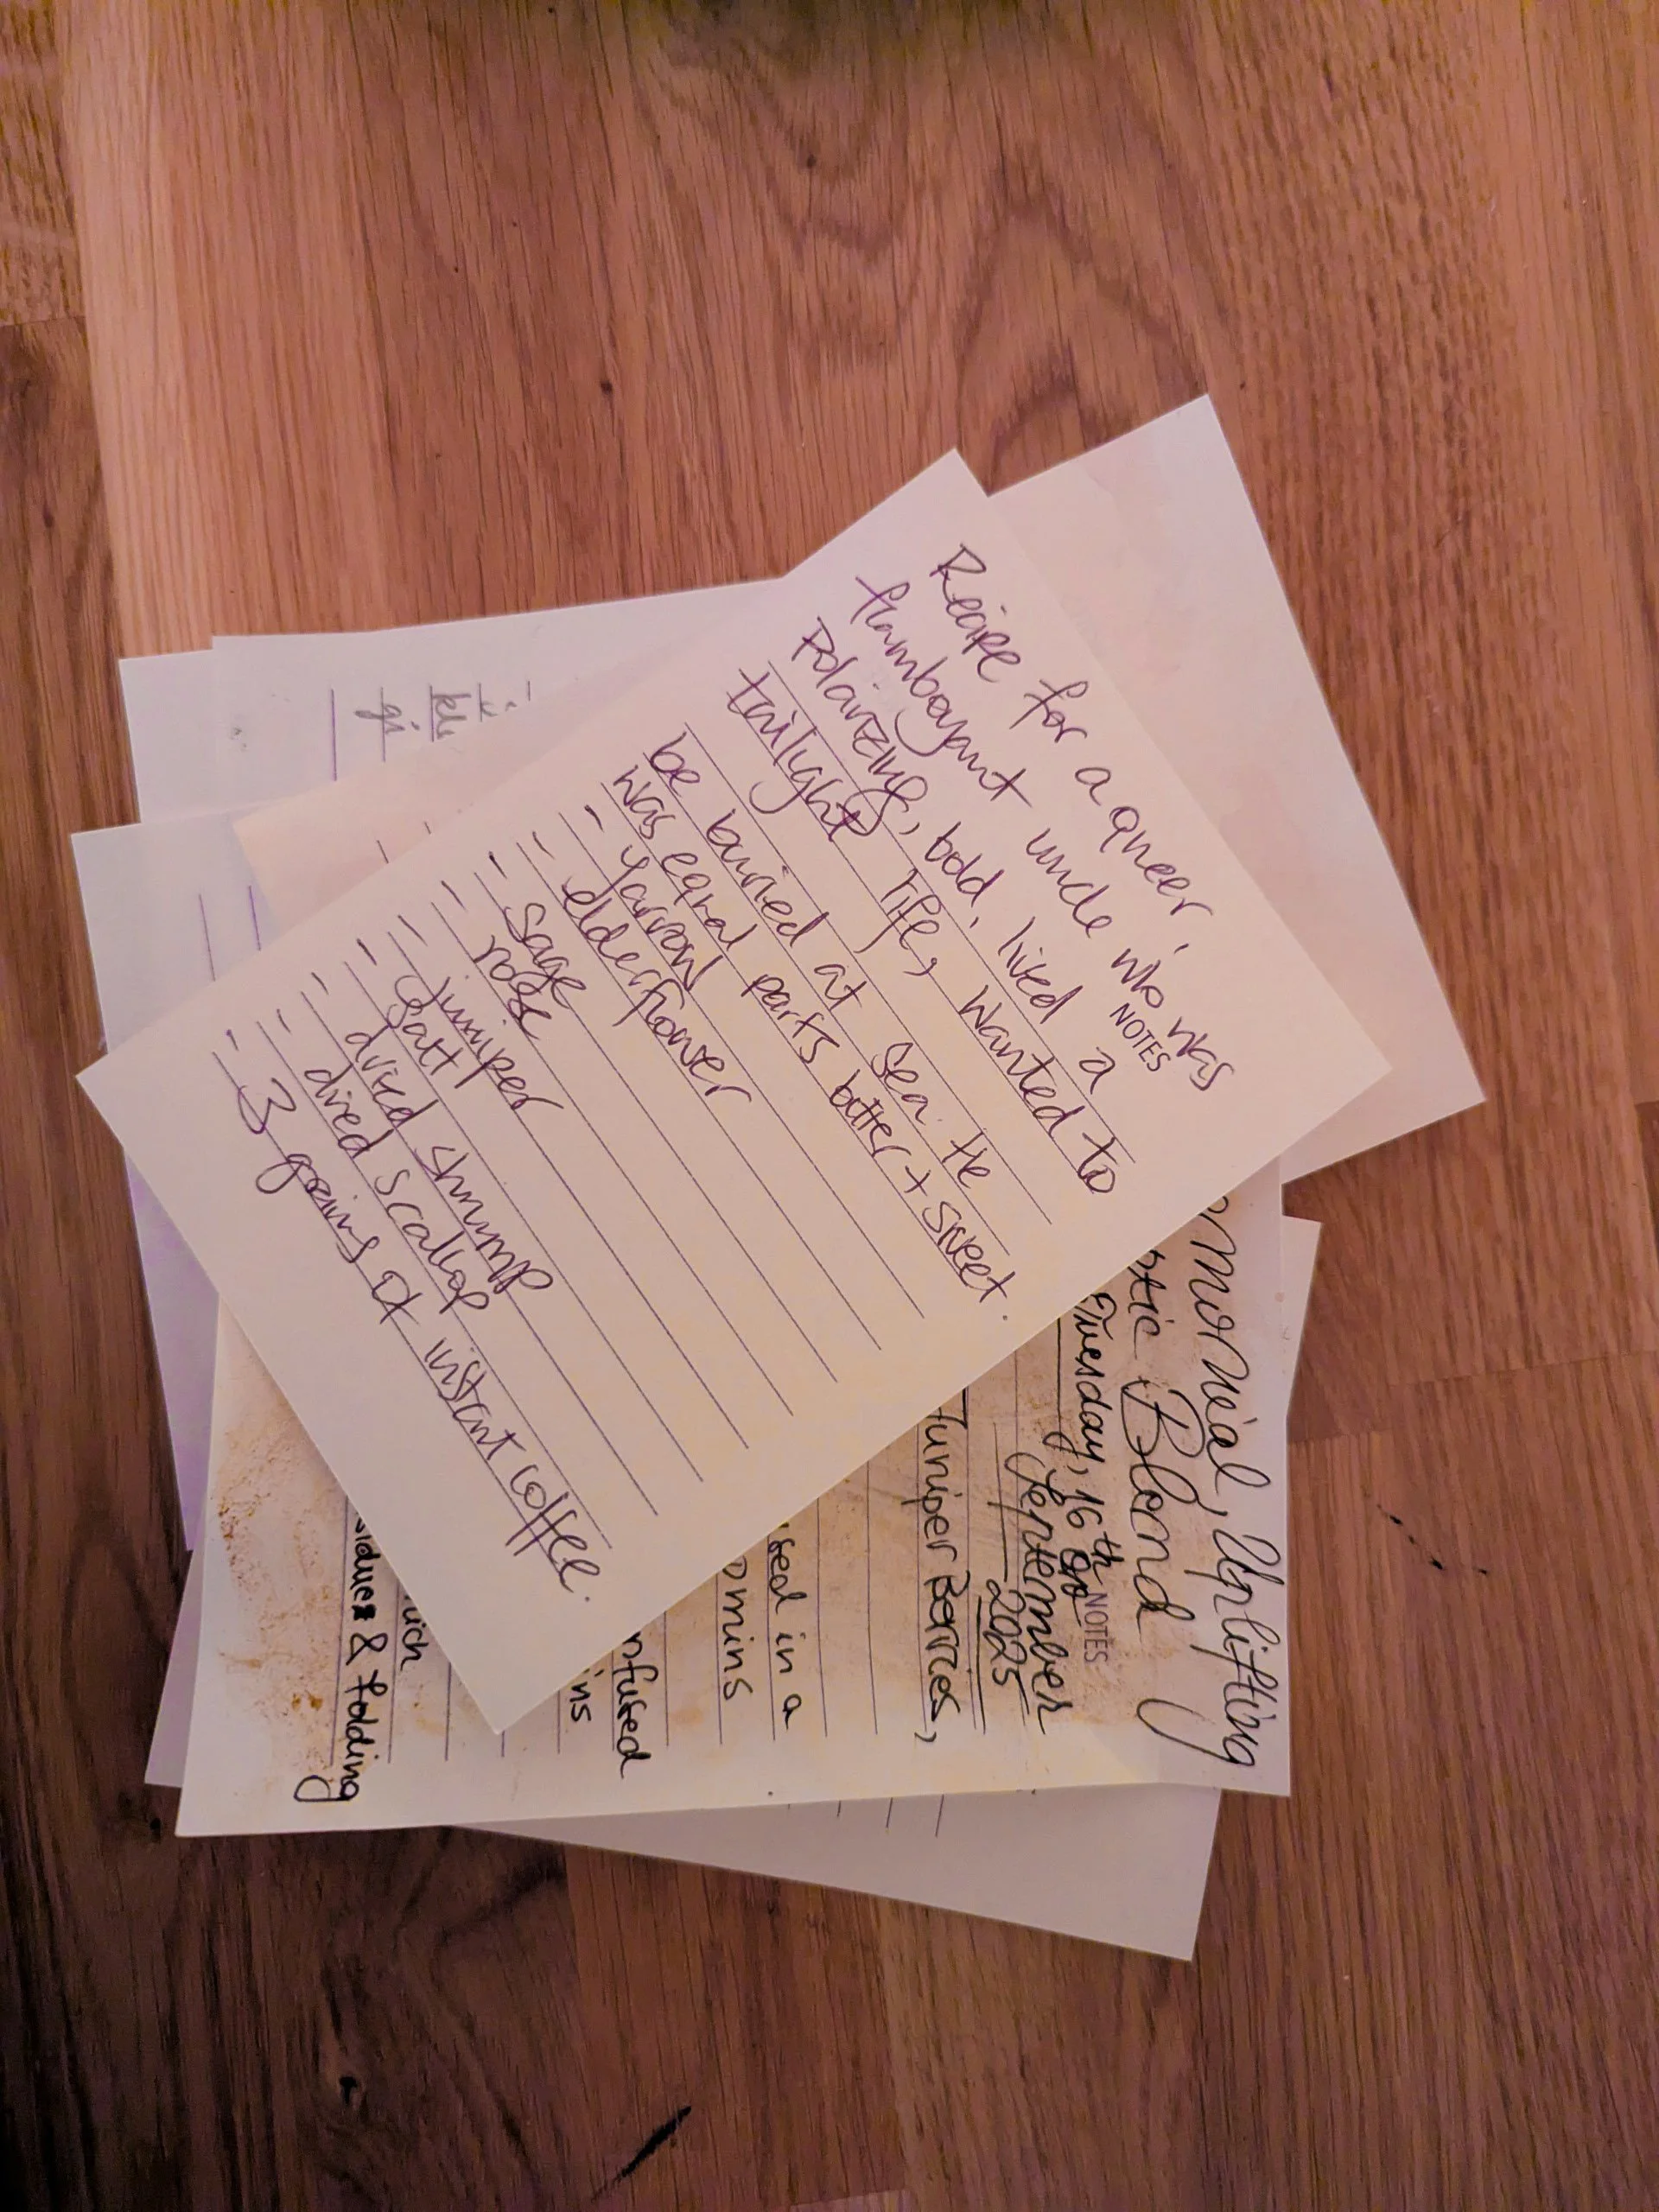 Recipe for a queer,
flamboyant uncle who was
NOTES
Polarizing, bold, lived a
twilight life, wanted to
be buried at sea. He
was equal parts bitter + sweet.
- yarrow
- elderflower
- sage
- rose
- juniper
- salt
- dried shrimp
- dried scallop
- 3 grains of instant coffee.
Uplifting
Blend
Tuesday, 16th
NOTES
September
2025
Juniper Berries,
in a
mins
& folding